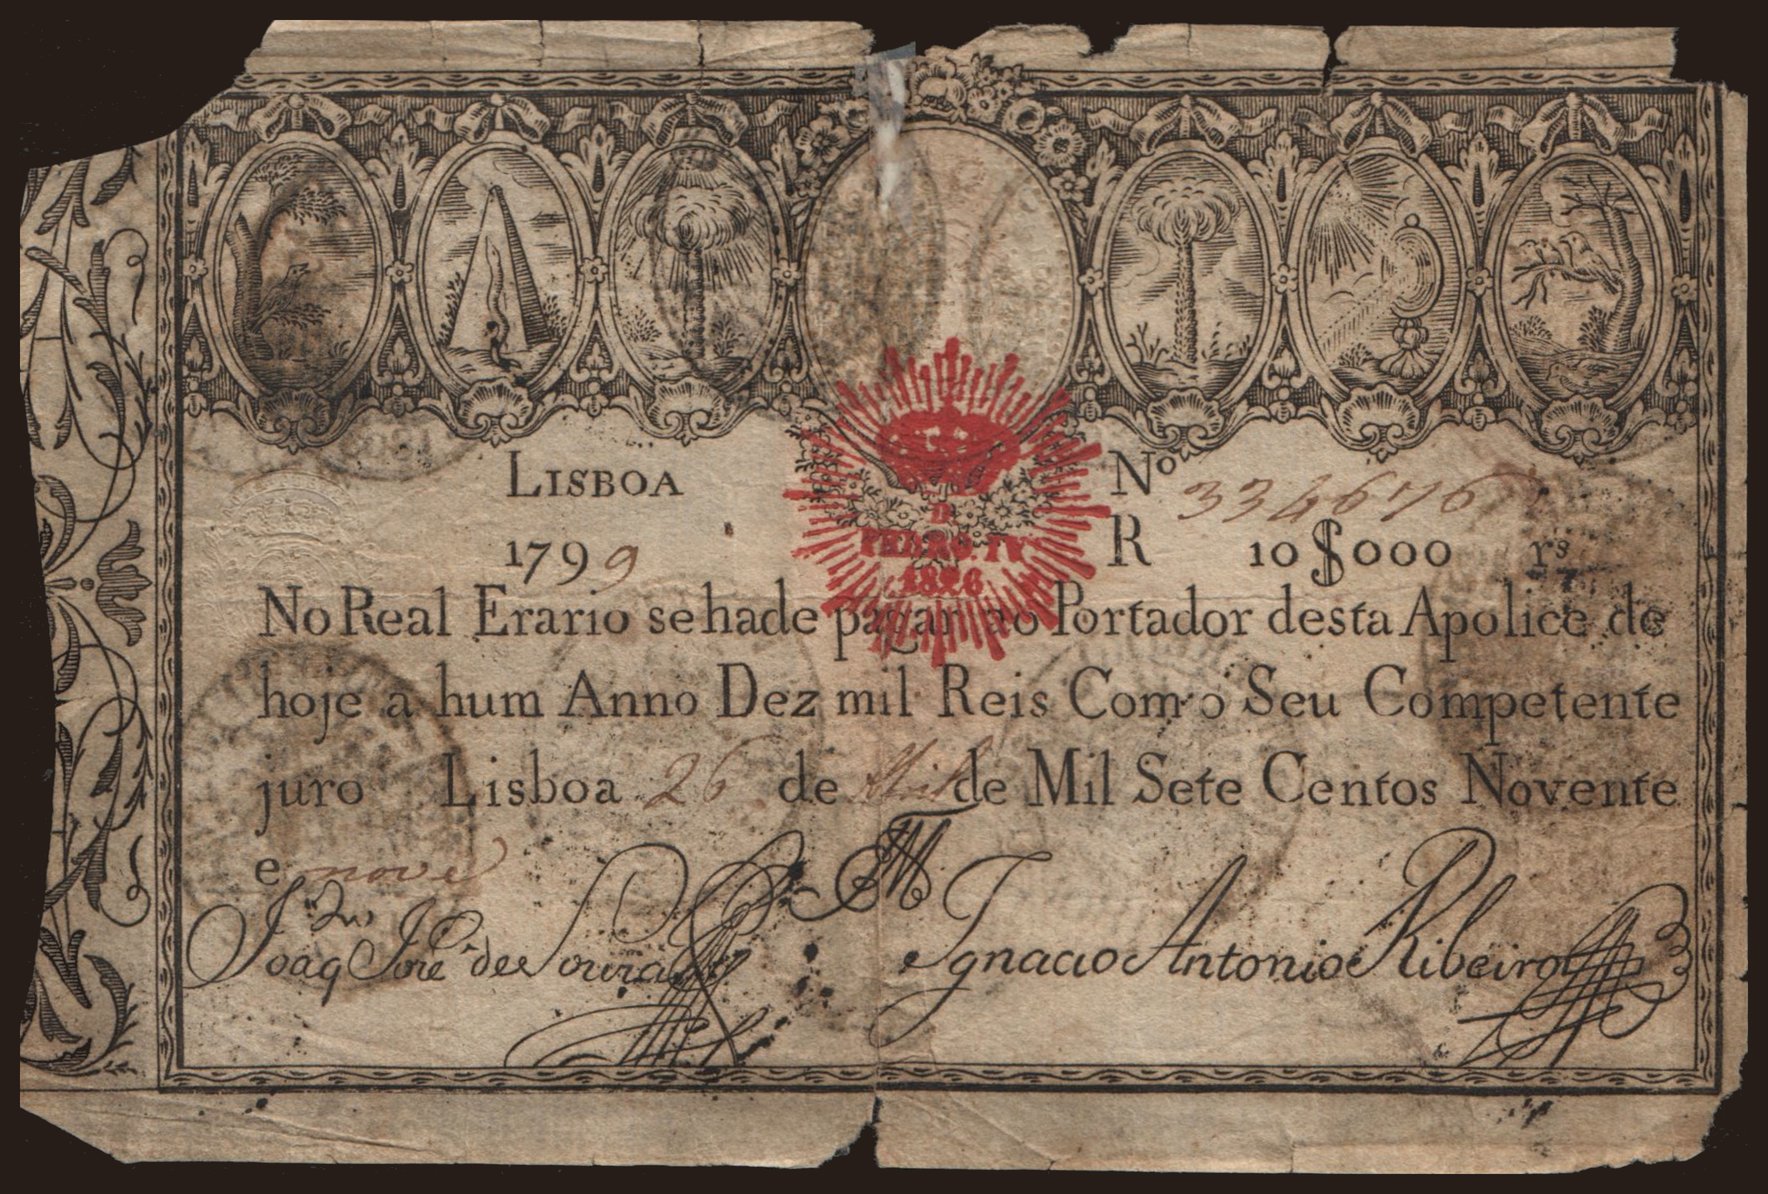 LISBOA
Nº 334676
1799
R 10$000 rs
D.
PEDRO IV
1826
No Real Erario se hade pagar ao Portador desta Apolice de
hoje a hum Anno Dez mil Reis Com o Seu Competente
juro Lisboa 26 de de Mil Sete Centos Novente
e nove
Joaq José de Souza
Ignacio Antonio Ribeiro